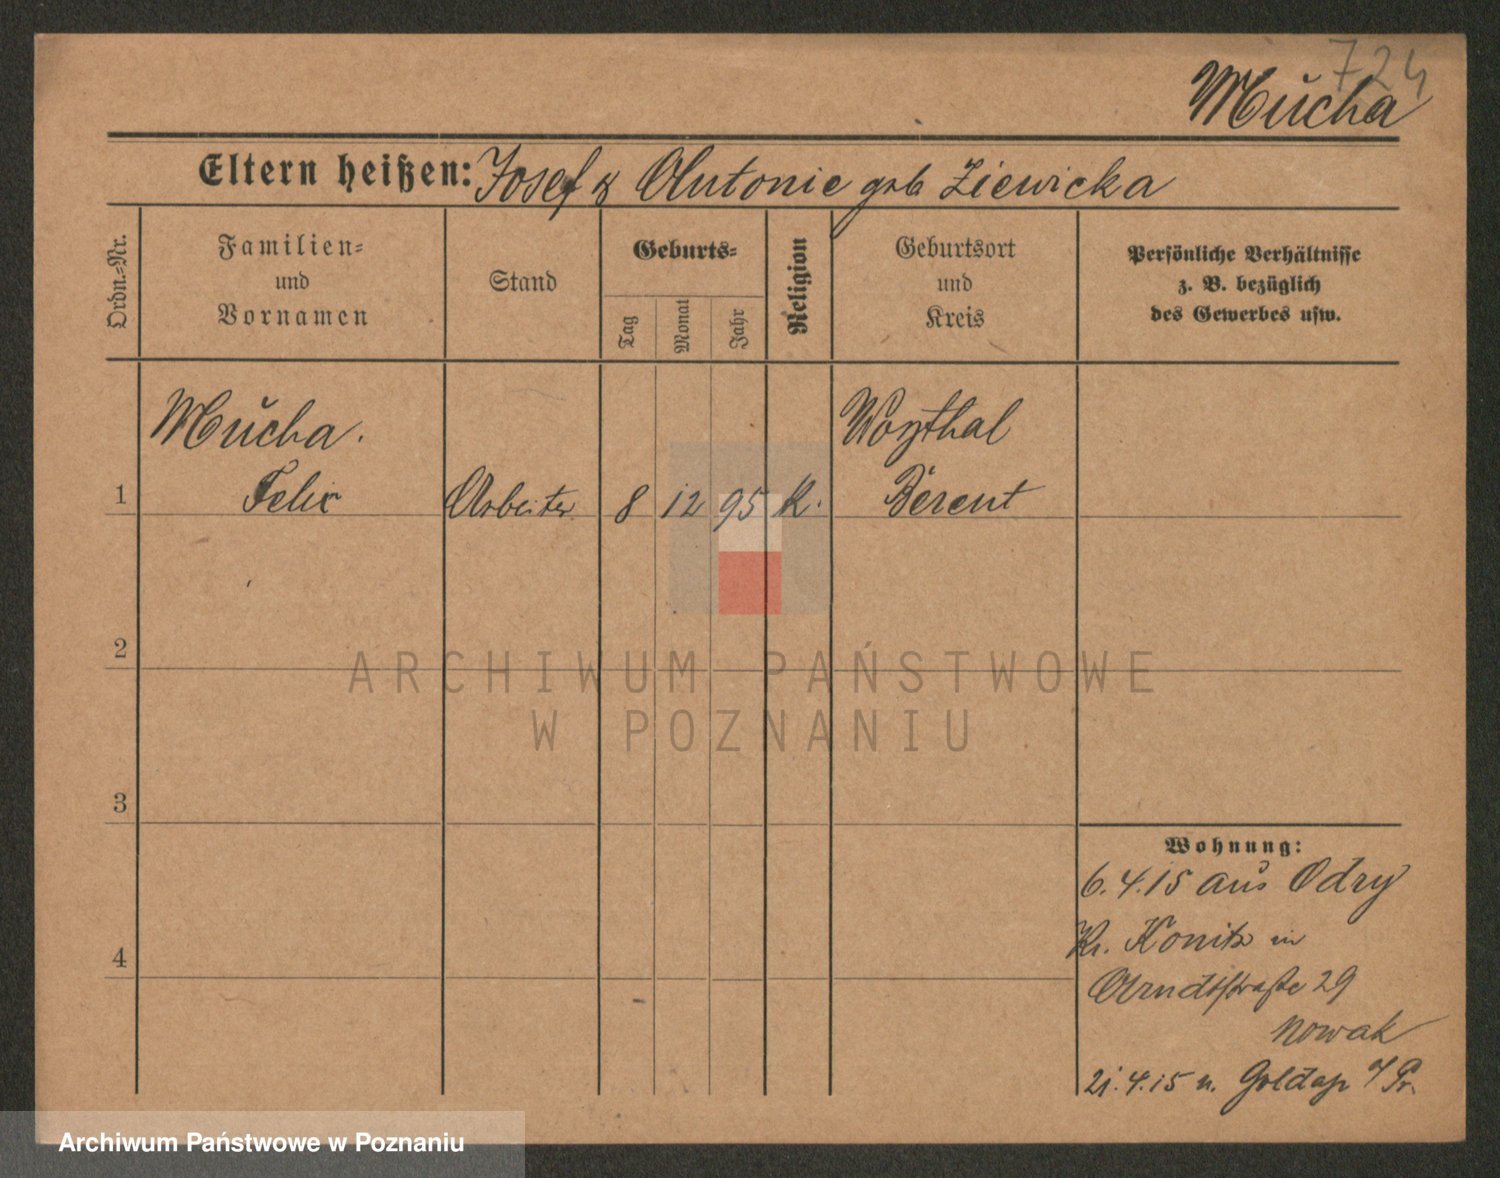 724
Mucha
Eltern heißen: Josef & Antonie geb Ziewicka
Ordn.=Nr.
Familien=
und
Vornamen
Stand
Geburts=
Tag
Monat
Jahr
Religion
Geburtsort
und
Kreis
Persönliche Verhältnisse
z. B. bezüglich
des Gewerbes usw.
Mucha.
1 Felix Arbeiter 8 12 95 K. Berent
2
3
4
Wohnung:
6.4.15 aus Odry
Kr. Konitz in
Arndtstraße 29
Nowak
21.4.15 n. Goldap
ARCHIWUM PAŃSTWOWE
W POZNANIU
Archiwum Państwowe w Poznaniu